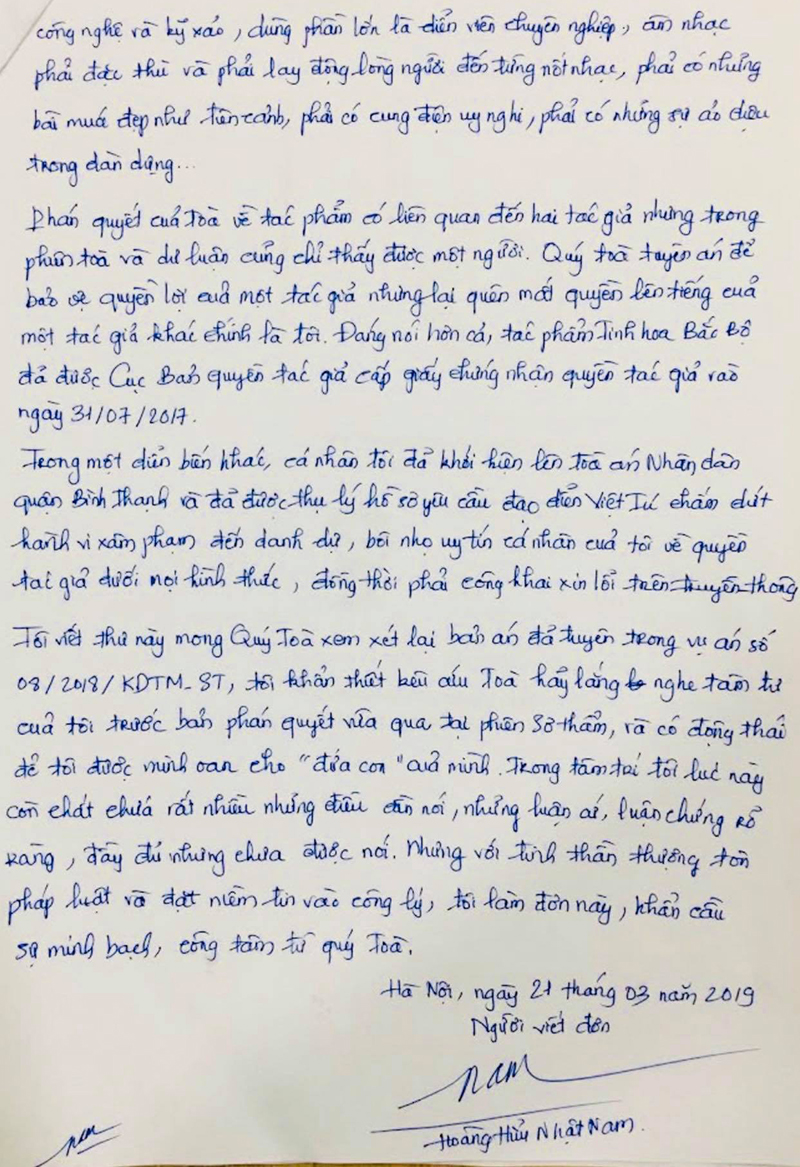 công nghệ và kỹ xảo, dùng phần lớn là diễn viên chuyên nghiệp, âm nhạc
phải đặc thù và phải lay động lòng người đến từng nốt nhạc, phải có những
bài múa đẹp như tiên cảnh, phải có cung điện uy nghi, phải có những sự ảo diệu
trong dàn dựng...
Phán quyết của Toà về tác phẩm có liên quan đến hai tác giả nhưng trong
phiên toà và dư luận cũng chỉ thấy được một người. Quý toà tuyên án để
bảo vệ quyền lợi của một tác giả nhưng lại quên mất quyền lên tiếng của
một tác giả khác chính là tôi. Đáng nói hơn cả, tác phẩm Tinh hoa Bắc Bộ
đã được Cục Bản quyền tác giả cấp giấy chứng nhận quyền tác giả vào
ngày 31/07/2017.
Trong một diễn biến khác, cá nhân tôi đã khởi kiện lên toà án Nhân dân
quận Bình Thạnh và đã được thụ lý hồ sơ yêu cầu đạo diễn Việt Tú chấm dứt
hành vi xâm phạm đến danh dự, bôi nhọ uy tín cá nhân của tôi về quyền
tác giả dưới mọi hình thức, đồng thời phải công khai xin lỗi trên truyền thông
Tôi viết thư này mong Quý Toà xem xét lại bản án đã tuyên trong vụ án số
08/2018/KDTM_ST, tôi khẩn thiết kêu cứu Toà hãy lắng nghe tâm tư
của tôi trước bản phán quyết vừa qua tại phiên Sơ thẩm, và có động thái
để tôi được minh oan cho "đứa con" của mình. Trong tâm trí tôi lúc này
còn chất chứa rất nhiều những điều cần nói, những luận cứ, luận chứng rõ
ràng, đầy đủ nhưng chưa được nói. Nhưng với tinh thần thượng tôn
pháp luật và đặt niềm tin vào công lý, tôi làm đơn này, khẩn cầu
sự minh bạch, công tâm từ quý Toà.
Hà Nội, ngày 21 tháng 03 năm 2019
Người viết đơn
NAM
Hoàng Hữu Nhật Nam.
nam